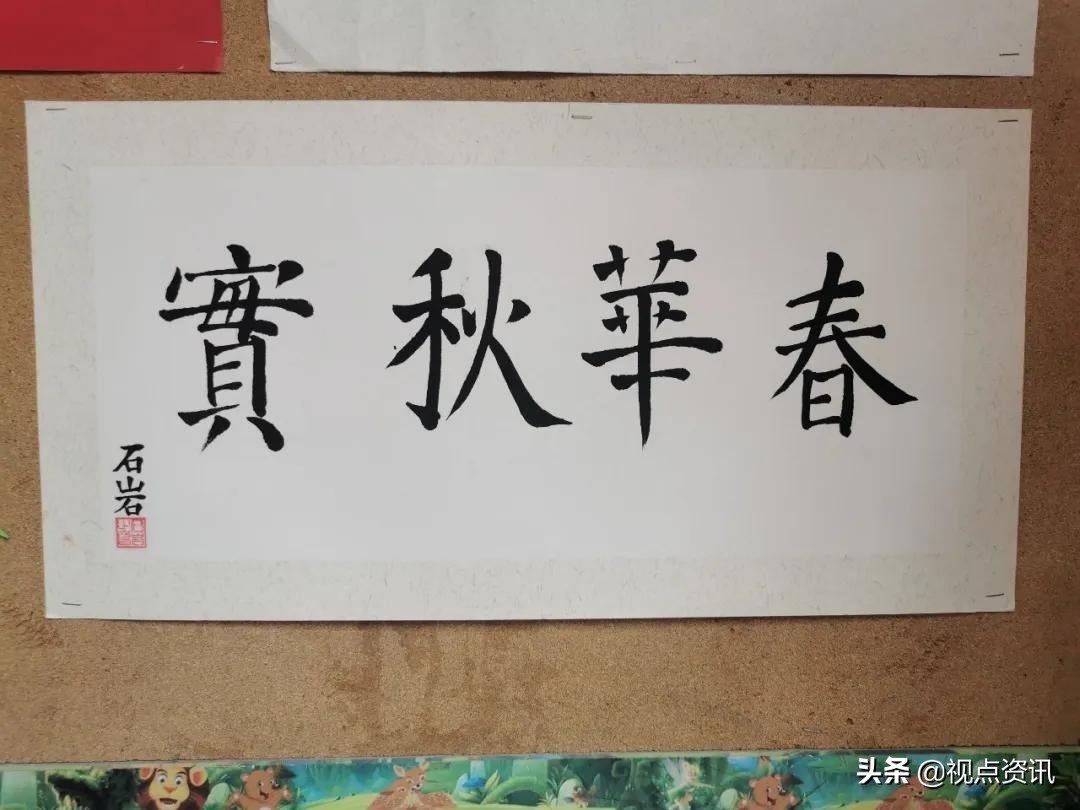 春華秋實
石岩
头条 @视点资讯